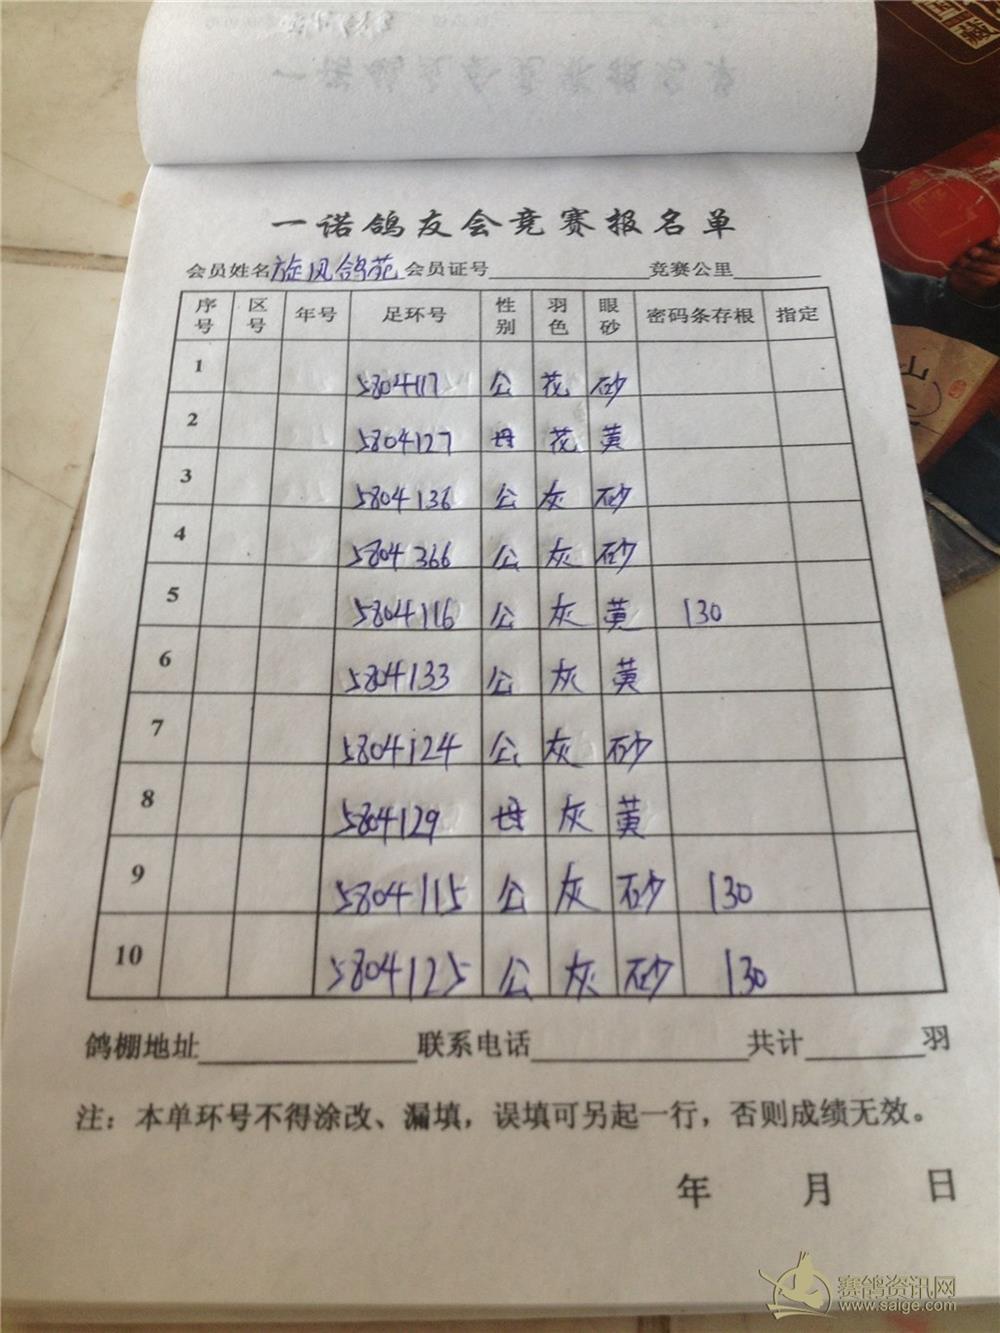 一诺鸽友会竞赛报名单
会员姓名旋风鸽苑 会员证号 竞赛公里
序号 区号 年号 足环号 性别 羽色 眼砂 密码条存根 指定
1 5804117 公 花 砂
2 5804127 母 花 黄
3 5804136 公 灰 砂
4 5804366 公 灰 砂
5 5804116 公 灰 黄 130
6 5804133 公 灰 黄
7 5804124 公 灰 砂
8 5804129 母 灰 黄
9 5804115 公 灰 砂 130
10 5804125 公 灰 砂 130
鸽棚地址 联系电话 共计 羽
注：本单环号不得涂改、漏填，误填可另起一行，否则成绩无效。
年 月 日
山
赛鸽资讯网
www.saige.com